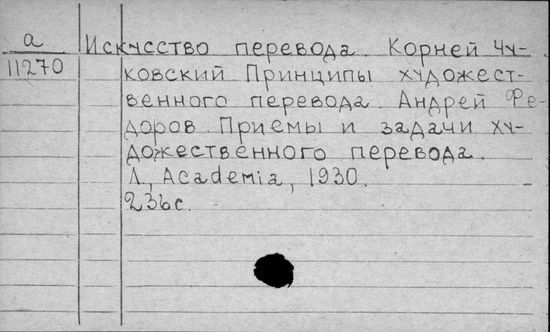 а Искусство перевода. Корней Чу-
11270 ковский Принципы художест-
венного перевода. Андрей Фе-
доров. Приемы и задачи ху-
дожественного перевода.
Л., Academia, 1930.
236с.